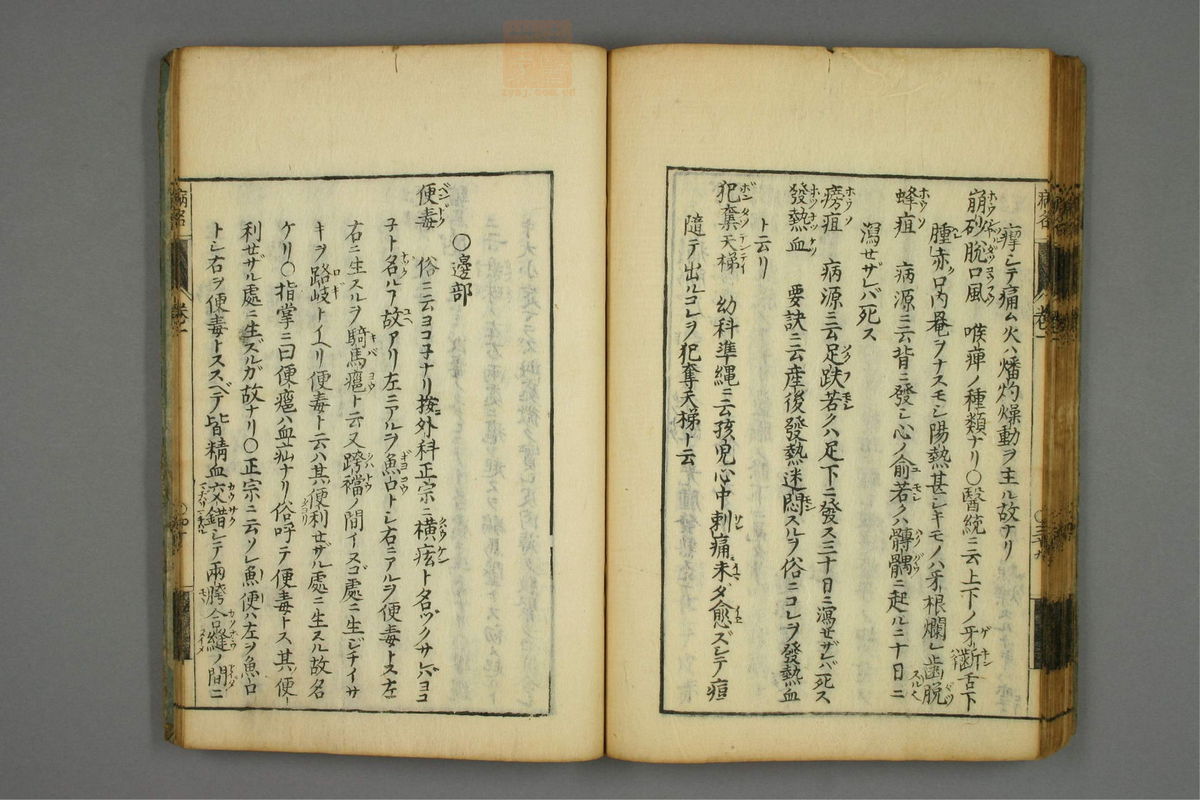 摩シテ痛ム火ハ燔灼燥動ヲ主ル故ナリ
崩砂脱口風 喉痺ノ種類ナリ〇醫統ニ云上下ノ牙齗舌下
腫赤口内菴ヲナスモシ陽熱甚シキモノハ牙根爛レ歯脱
蜂疽 病源ニ云背ニ發シ心ノ俞若クハ髆髃ニ起ル二十日ニ
瀉せザレバ死ス
𤺄疽 病源ニ云足趺若クハ足下ニ發ス三十日ニ瀉せザレバ死ス
發熱血 要訣ニ云産後發熱迷悶スルヲ俗ニコレヲ發熱血
ト云リ
犯奪天梯 幼科準縄ニ云孩児心中刺痛未ダ愈ズシテ痘
隨テ出ルコレヲ犯奪天梯ト云
〇邊部
便毒 俗ニ云ヨコ子ナリ按外科正宗ニ横痃ト名ヅクサレバヨコ
子ト名ルノ故アリ左ニアルヲ魚口トシ右ニアルヲ便毒トス左
右ニ生スルヲ騎馬癰ト云又跨襠ノ間イスゴ處ニ生ジチイサ
キヲ路岐ト云リ便毒ト云ハ其便利せザル處ニ生スル故名
ケリ〇指掌ニ曰便癰ハ血疝ナリ俗呼テ便毒トス其便
利せザル處ニ生ズルガ故ナリ〇正宗ニ云ソレ魚便ハ左ヲ魚口
トシ右ヲ便毒トススベテ皆精血交錯シテ兩胯合縫ノ間ニ
病名
卷一
病名
卷一